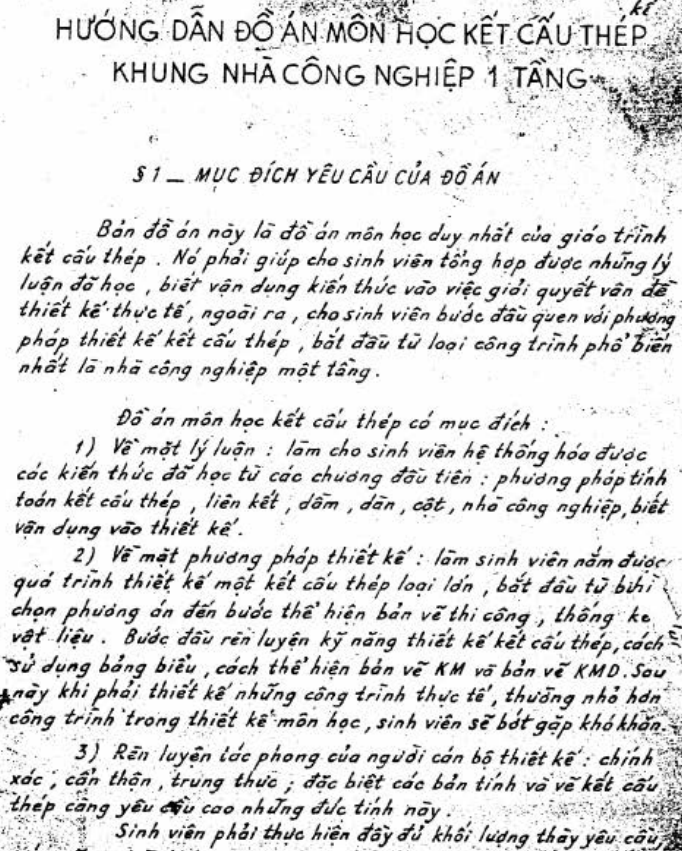 kế
HƯỚNG DẪN ĐỒ ÁN MÔN HỌC KẾT CẤU THÉP
KHUNG NHÀ CÔNG NGHIỆP 1 TẦNG
§ 1 _ MỤC ĐÍCH YÊU CẦU CỦA ĐỒ ÁN
Bản đồ án này là đồ án môn học duy nhất của giáo trình
kết cấu thép . Nó phải giúp cho sinh viên tổng hợp được những lý
luận đã học , biết vận dụng kiến thức vào việc giải quyết vấn đề
thiết kế thực tế, ngoài ra , cho sinh viên bước đầu quen với phương
pháp thiết kế kết cấu thép , bắt đầu từ loại công trình phổ biến
nhất là nhà công nghiệp một tầng .
Đồ án môn học kết cấu thép có mục đích :
1) Về mặt lý luận : làm cho sinh viên hệ thống hóa được
các kiến thức đã học từ các chương đầu tiên : phương pháp tính
toán kết cấu thép , liên kết , dầm , dàn , cột , nhà công nghiệp, biết
vận dụng vào thiết kế .
2) Về mặt phương pháp thiết kế : làm sinh viên nắm được
quá trình thiết kế một kết cấu thép loại lớn , bắt đầu từ
chọn phương án đến bước thể hiện bản vẽ thi công , thống kê
vật liệu . Bước đầu rèn luyện kỹ năng thiết kế kết cấu thép, cách
sử dụng bảng biểu , cách thể hiện bản vẽ KM và bản vẽ KMD. Sau
này khi phải thiết kế những công trình thực tế , thường nhỏ hơn
công trình trong thiết kế môn học , sinh viên sẽ bớt gặp khó khăn.
3) Rèn luyện tác phong của người cán bộ thiết kế : chính
xác , cẩn thận , trung thực ; đặc biệt các bản tính và vẽ kết cấu
thép càng yêu cầu cao những đức tính này .
Sinh viên phải thực hiện đầy đủ khối lượng thầy yêu cầu,